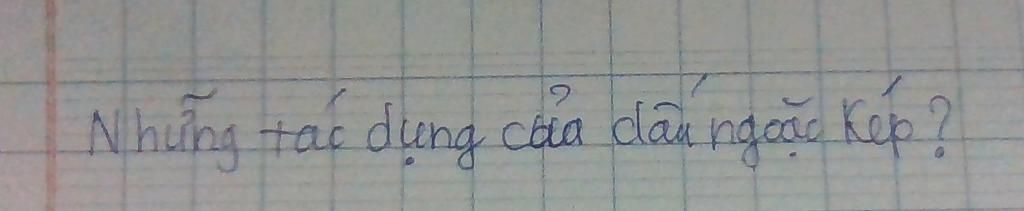 Những tác dụng của dấu ngoặc kép?